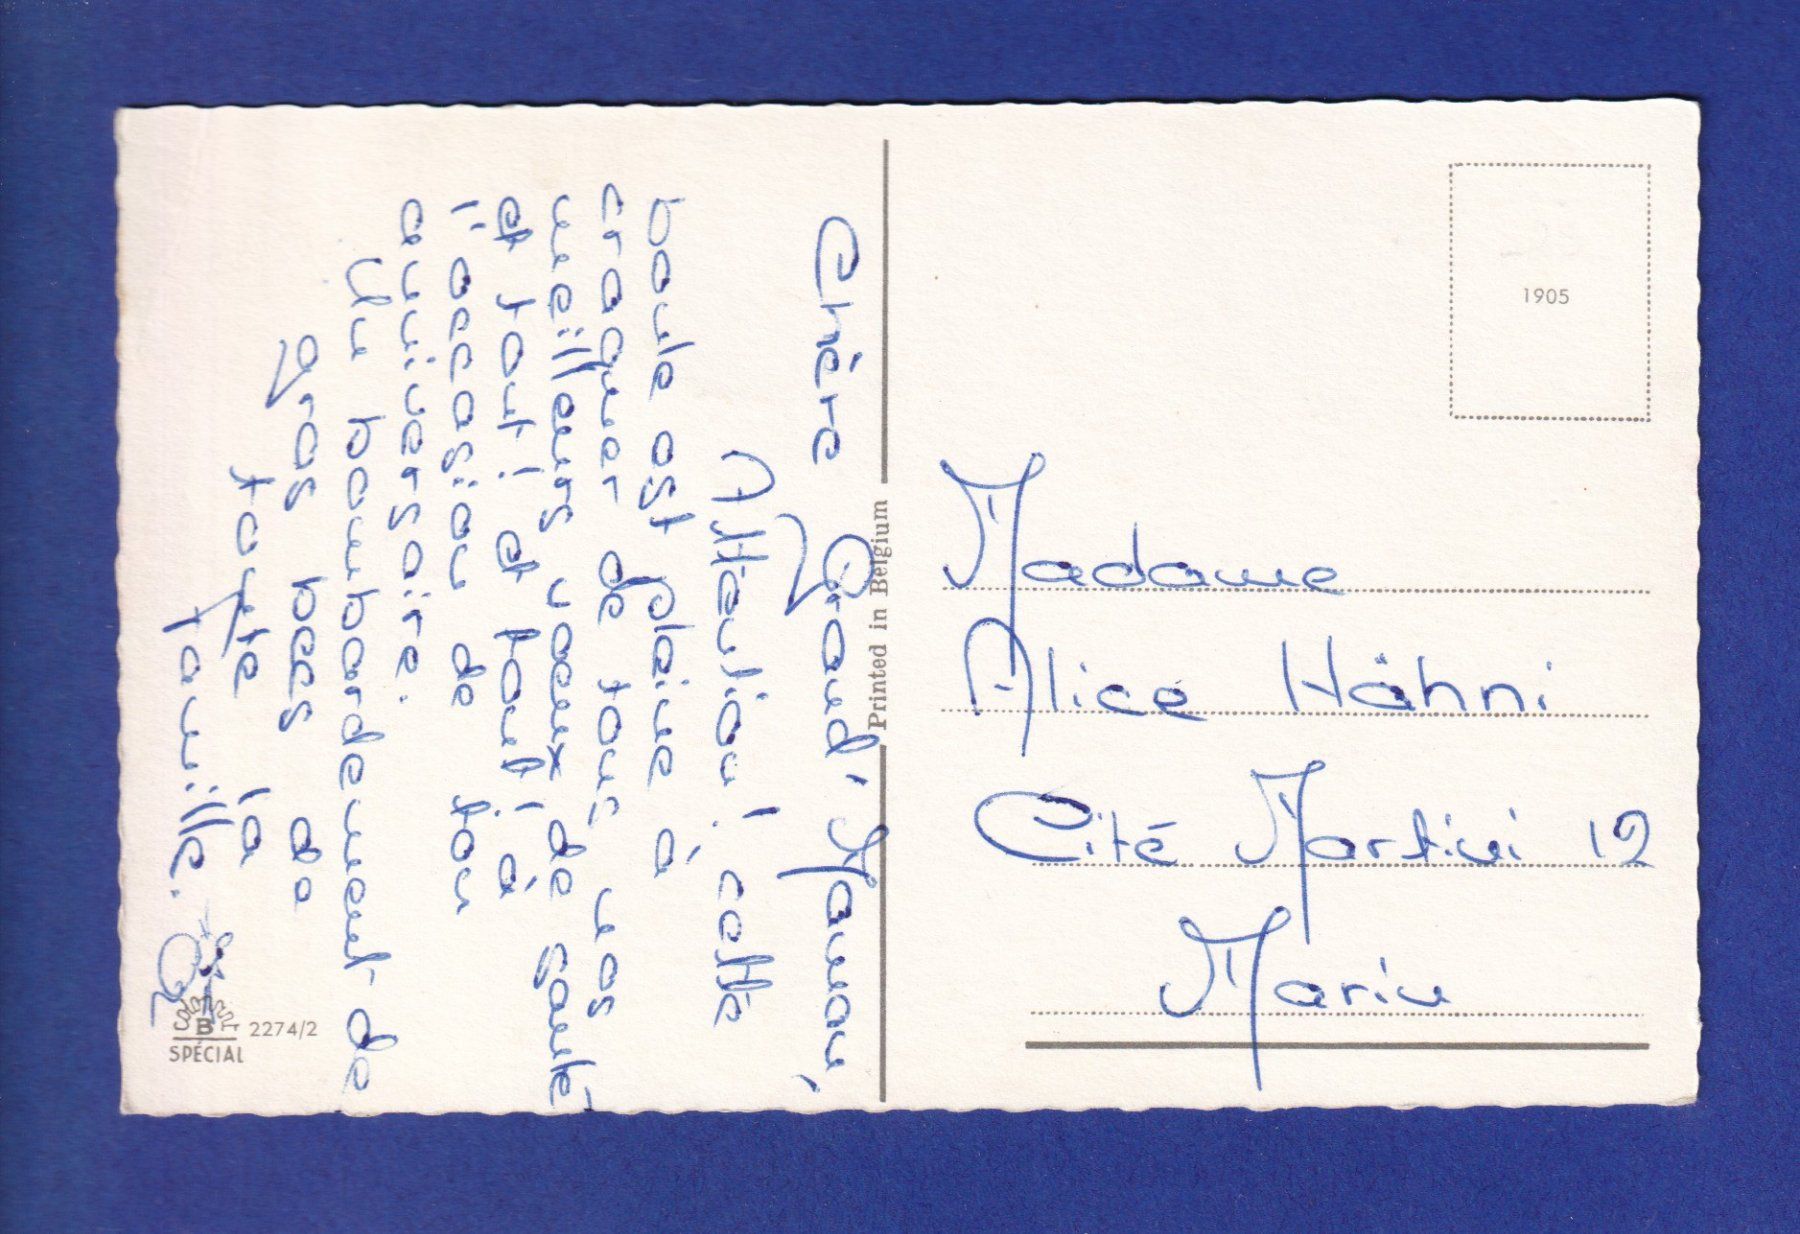 Chère Grand' Maman,
Attention! cette
boule est pleine à
craquer de tous nos
meilleurs voeux de santé
et tout! et tout! à
l'occasion de ton
anniversaire.
Un bombardement de
gros becs de
toute la
famille.
B
SPÉCIAL
2274/2
Printed in Belgium
1905
Madame
Alice Hähni
Cité Martini 12
Marin